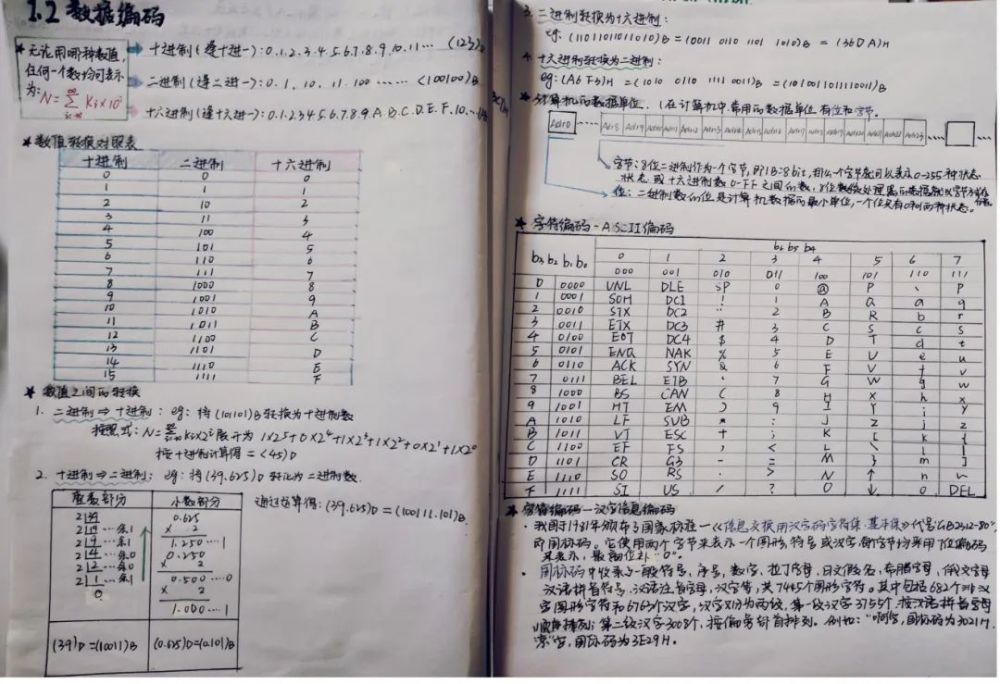 1.2 数据编码
* 无论用哪种数值,
任何一个数均可表示
为:
十进制(逢十进一):0.1.2.3.4.5.6.7.8.9.10.11… (123)D
二进制(逢二进一):0.1.10.11.100…… (100100)B
十六进制(逢十六进一):0.1.2.3.4.5.6.7.8.9.A.B.C.D.E.F.10.…
* 数值转换对照表
十进制 二进制 十六进制
0 0 0
1 1 1
2 10 2
3 11 3
4 100 4
5 101 5
6 110 6
7 111 7
8 1000 8
9 1001 9
10 1010 A
11 1011 B
12 1100 C
13 1101 D
14 1110 E
15 1111 F
* 数值之间的转换
1. 二进制⇒十进制: eg: 将(101101)B转换为十进制数
展开为 1X2⁵+0X2⁴+1X2³+1X2²+0X2¹+1X2⁰
按十进制计算得=(45)D
2. 十进制⇒二进制: eg: 将(39.625)D转化为二进制数.
整数部分 小数部分
通过运算得:(39.625)D=(100111.101)B
2|39 0.625
2|19 …余1 X 2
2|9 …余1 1.250 …1
2|4 …余1 0.250
2|2 …余0 X 2
2|1 …余0 0.500 …0
0 …余1 X 2
1.000 …1
(39)D=(10011)B (0.625)D=(0.101)B
3. 二进制转换为十六进制:
eg: (11011011011010)B=(0011 0110 1101 1010)B=(36DA)H
4. 十六进制转换为二进制:
eg:(A6F3)H=(1010 0110 1111 0011)B=(1010011011110011)B
* 计算机的数据单位.(在计算机中常用的数据单位有位和字节.
字节:8位二进制作为一个字节,即1B=8bit,那么一个字节就可以表示0-255种状态
状态或十六进制数0-FF之间的数,
位:二进制数的位是计算机数据的最小单位,一个位只有0和1两种状态。
* 字符编码-ASCII编码
b6 b5 b4
b3 b2 b1 b0 0 1 2 3 4 5 6 7
000 001 010 011 100 101 110 111
0 0000 UNL DLE SP 0 @ P 、 P
1 0001 SOH DC1 ! 1 A Q a q
2 0010 STX DC2 " 2 B R b r
3 0011 ETX DC3 # 3 C S c s
4 0100 EOT DC4 $ 4 D T d t
5 0101 ENQ NAK % 5 E U e u
6 0110 ACK SYN & 6 F V f v
7 0111 BEL ETB ' 7 G W g w
8 1000 BS CAN ( 8 H X h x
9 1001 HT EM ) 9 I Y i y
A 1010 LF SUB * : J Z j z
B 1011 VT ESC + ; K [ k {
C 1100 EF FS , < L \ l |
D 1101 CR GS - = M ] m }
E 1110 SO RS . > N ↑ n ~
F 1111 SI US / ? O ↓ o DEL
* 字符编码-汉字信息编码
· 我国于1981年颁布了国家标准-《信息交换用汉字码字符集·基本集》代号:GB2312-80"
即国标码。它使用两个字节来表示一个图形符号或汉字,每字节均采用7位编码
来表示,最高位补"0"。
· 国标码中收录了一般符号,序号,数字,拉丁字母,日文假名,希腊字母,俄文字母
汉语拼音符号,汉语注音字母,汉字等,共7445个图形字符。其中包括682个非汉
字图形字符和6763个汉字,汉字又分为两级,第一级汉字3755个,按汉语拼音字母
顺序排列;第二级汉字3008个,按偏旁部首排列。例如:"啊"字,国标码为3021H
国标码为3E29H。